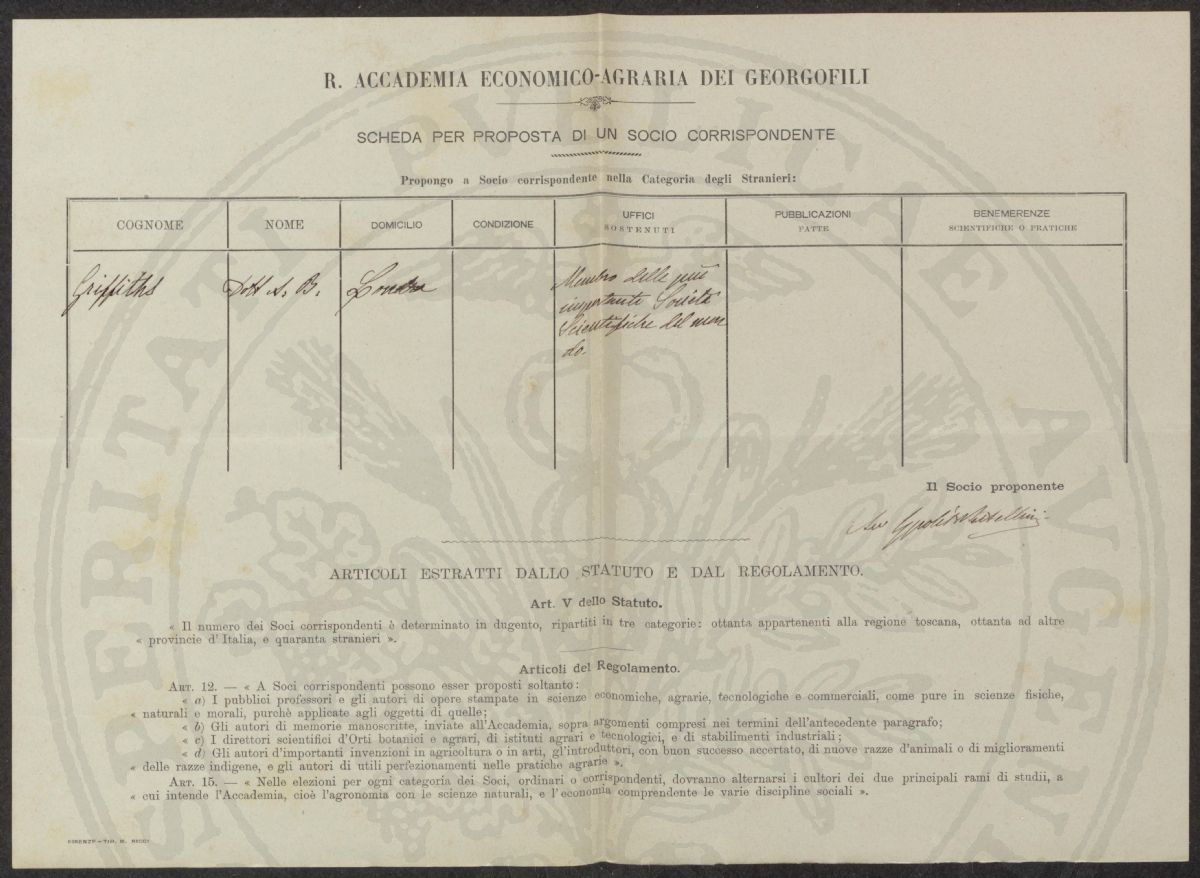 R. ACCADEMIA ECONOMICO-AGRARIA DEI GEORGOFILI
SCHEDA PER PROPOSTA DI UN SOCIO CORRISPONDENTE
Propongo a Socio corrispondente nella Categoria degli Stranieri:
COGNOME
NOME
DOMICILIO
CONDIZIONE
UFFICI
SOSTENUTI
PUBBLICAZIONI
FATTE
BENEMERENZE
SCIENTIFICHE O PRATICHE
Griffiths
Dott A. B.
Londra
Membro delle più
importante Società
Scientifiche del mon
do.
Il Socio proponente
ARTICOLI ESTRATTI DALLO STATUTO E DAL REGOLAMENTO.
Art. V dello Statuto.
« Il numero dei Soci corrispondenti è determinato in dugento, ripartiti in tre categorie: ottanta appartenenti alla regione toscana, ottanta ad altre
« provincie d'Italia, e quaranta stranieri ».
Articoli del Regolamento.
ART. 12. — « A Soci corrispondenti possono esser proposti soltanto:
« a) I pubblici professori e gli autori di opere stampate in scienze economiche, agrarie, tecnologiche e commerciali, come pure in scienze fisiche,
« naturali e morali, purchè applicate agli oggetti di quelle;
« b) Gli autori di memorie manoscritte, inviate all'Accademia, sopra argomenti compresi nei termini dell'antecedente paragrafo;
« c) I direttori scientifici d'Orti botanici e agrari, di istituti agrari e tecnologici, e di stabilimenti industriali;
« d) Gli autori d'importanti invenzioni in agricoltura o in arti, gl'introduttori, con buon successo accertato, di nuove razze d'animali o di miglioramenti
« delle razze indigene, e gli autori di utili perfezionamenti nelle pratiche agrarie ».
ART. 15. — « Nelle elezioni per ogni categoria dei Soci, ordinari o corrispondenti, dovranno alternarsi i cultori dei due principali rami di studii, a
« cui intende l'Accademia, cioè l'agronomia con le scienze naturali, e l'economia comprendente le varie discipline sociali ».
FIRENZE - TIP. M. RICCI